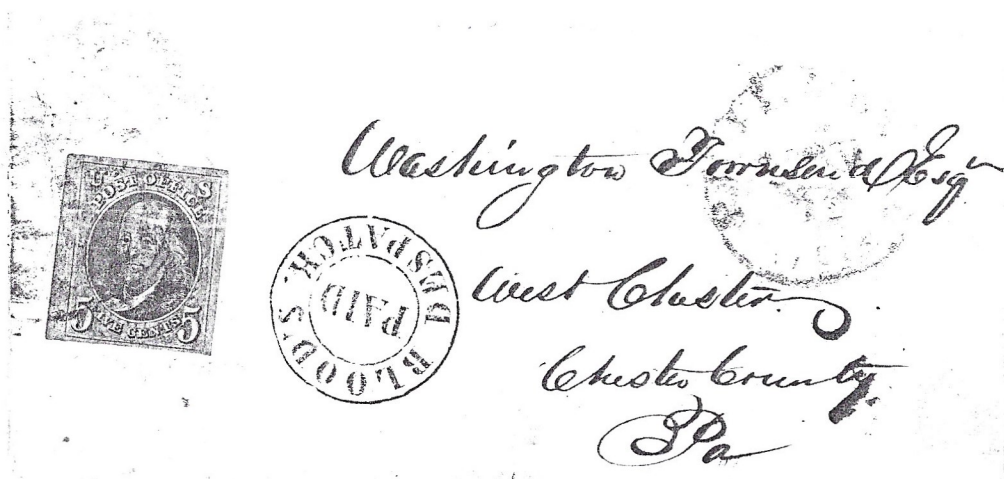 U S
POST OFFICE
5 FIVE CENTS 5
BLOOD'S DESPATCH
PAID
Washington Townsend Esqr
West Chester
Chester County
Pa